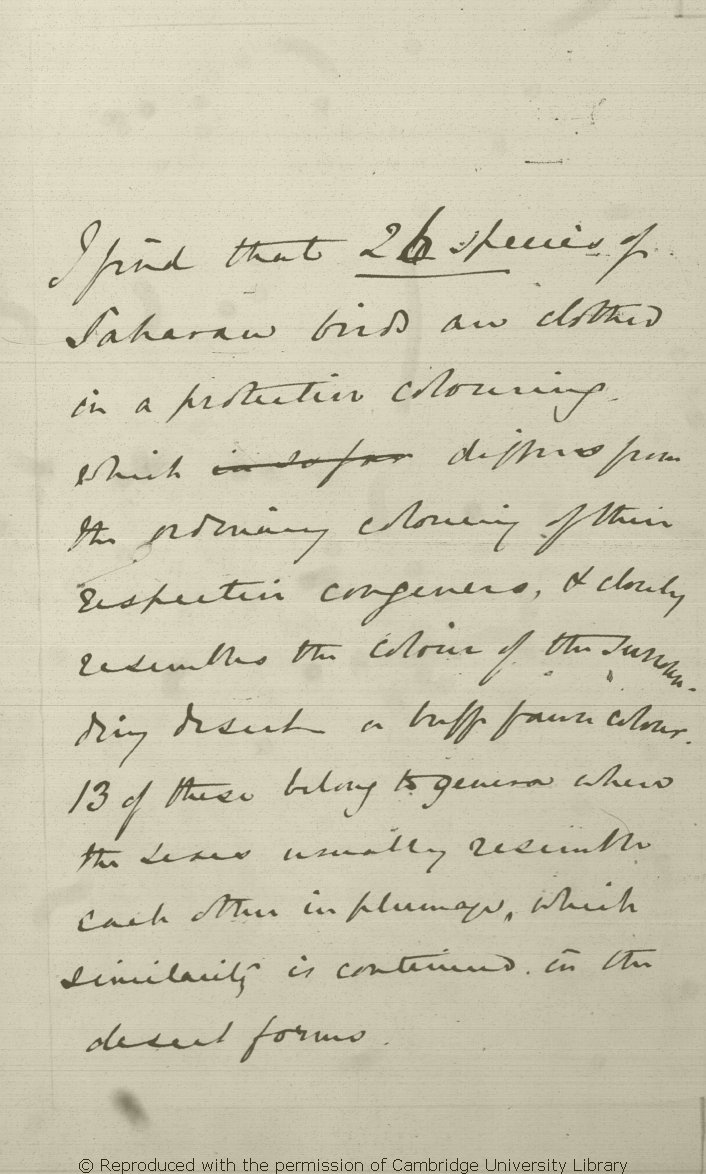 I find that 26 species of
Saharan birds are clothed
in a protective colouring
which in so far differs from
the ordinary colouring of their
respective congeners, & closely
resembles the colour of the surroun-
ding desert or buff fawn colour.
13 of these belong to genera where
the sexes usually resemble
each other in plumage, which
similarity is continued in the
desert forms.
© Reproduced with the permission of Cambridge University Library